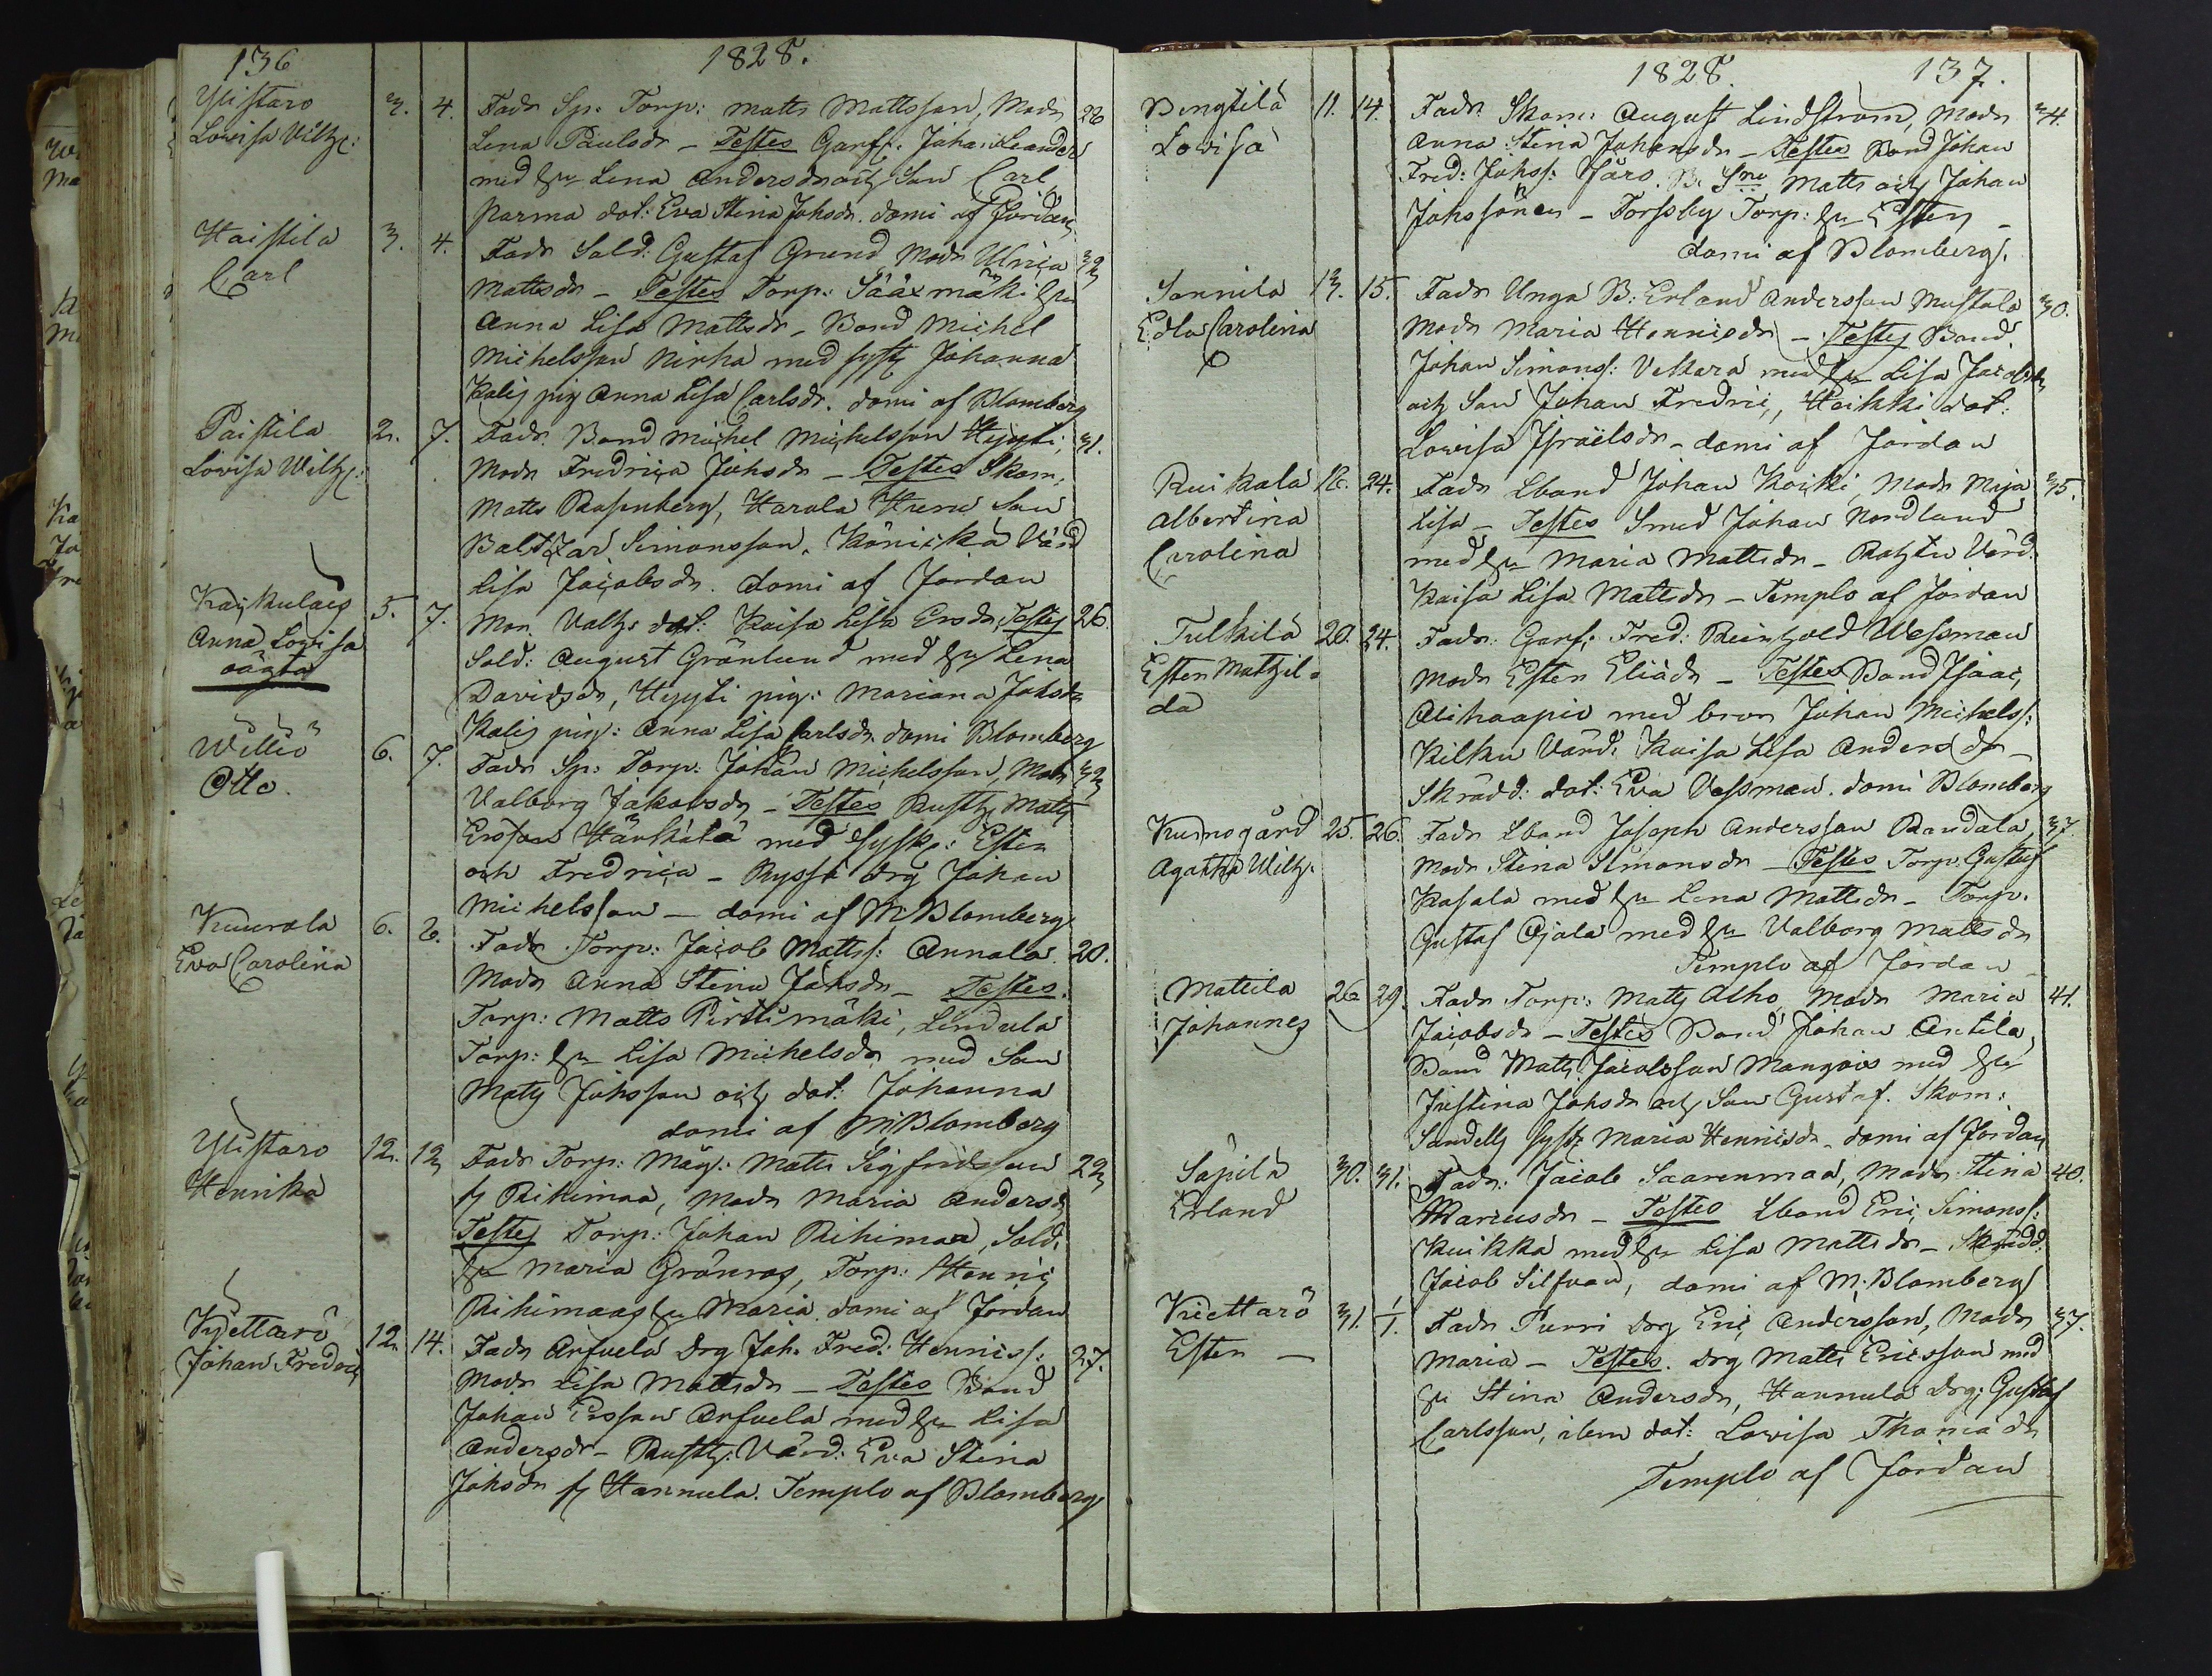 136
1828.
Ylistaro 3. 4. Fadr Sp. Torp: Matts Mattsson, Modr 26
Lovisa Vilh: Lena Paulsdr - Testes Garf: Joha: Leander
med hu Lena Andersdr och Son Carl
Parma dot: Eva Stina Johsdr. domi af Jordan
Haistila 3. 4. Fadr Sold: Gustaf Grund Modr Ulrica 32
Carl Mattsdr - Testes Torp: Sääxmäki hu
Anna Lisa Mattsdr - Bond Michel
Michelsson Nirha med syst Johanna
Kalij pig Anna Lisa Carlsdr. domi af Blomberg
Paistila 2. 7. Fadr Bond Michel Michelsson Hyyti, 31.
Lovisa Wilh: Modr Fredrica Johsdr - Testes Skom:
Matts Rosenberg, Harola Son
Baltzar Simonsson. Könickä Värd
Lisa Jacobsdr. domi af Jordan
Kaukulais 5. 7. Mor. Vallh: dot: Kaisa Lisa Ersdr, Testes 26.
Anna Lovisa Sold: August Grönlund med hu Lena
oägta Davidsdr, Hyyti pig: Mariana Johsdr
Kalij pig: Anna Lisa Carlsdr. domi Blomberg
Willio 6. 7. Fadr Sp: Torp: Johan Michelsson, Modr 32
Otto. Valborg Jakobsdr - Testes Rusth: Matts
Ersson Härkälä med Sysk: Ester
och Fredrica - Ryssä drg Johan
Michelsson - domi af M. Blomberg
Kuurola 6. 8. Fadr Torp: Jacob Mattss: Annala. 20.
Eva Carolina Modr Anna Stina Johsdr - Testes.
Torp: Matts Pirttimäki, Lindula
Torp: hu Lisa Michelsdr med Son
Matts Johsson och dot: Johanna
domi af M Blomberg
Ylistaro 12. 12 Fadr Torp: Måg: Matts Sigfridsson 22
Henrika fr Rihimaa, Modr Maria Andersdr
Testes Torp: Johan Rihimaa, Sold:
hu Maria Grönroos, Torp: Henric
Rihimaas hu Maria. domi af Jordan
Viettarö 12. 14. Fadr Arfvela drg Joh. Fred: Henricss: 27.
Johan Fredric Modr Lisa Mattsdr - Testes Bond
Johan Ersson Arfvela med hu Lisa
Andersdr - Rusth: Värd: Eva Stina
Johsdr fr Hannula. Templo af Blomberg
1828. 137.
Bengtilä 11. 14. Fadr Skom: August Lindström, Modr 34.
Lovisa Anna Stina Johansdr - Testes Bond Johan
Fred: Johss: Matts och Johan
Johssöner - Torssby Torp: hu Ester -
domi af Blomberg.
Sannila 13. 15. Fadr Unga B: Erland Andersson Mustala 30.
Edla Carolina Modr Maria Henricsdr - Testes Bond
Johan Simonss: Vekara med hu Lisa Jacobsdr
och Son Johan Fredric, Heikki dot:
Lovisa Israelsdr - domi af Jordan
Ruikala 18. 24. Fadr Lbond Johan Koiki, Modr Maja 35.
Albertina Lisa - Testes Smed Johan Nordlund
Carolina med hu Maria Mattsdr - Värd:
Kaisa Lisa Mattsdr - Templo af Jordan
Tulkila 20. 24. Fadr: Garf: Fred: Reinhold Wessman
Ester Mathil- Modr Ester Eliædr - Testes Bond Isaac,
da Alihaapio med bror Johan Michelss:
Kilkku Värd: Kaisa Lisa Andersdr -
Skrädd: dot: Eva Vessman. domi Blomberg
Kungsgård 25. 26. Fadr Lbond Joseph Andersson Randala, 37.
Agatha Wilh. Modr Stina Simonsdr - Testes Torp: Gustaf
Kasala med hu Lena Mattsdr - Torp.
Gustaf Ojala med hu Valborg Mattsdr
Templo af Jordan
Mattila 26 29. Fadr Torp: Matts Alho, Modr Maria 41.
Johannes Jacobsdr - Testes Bond Johan Antila,
Bond Matts Jacobsson Mangois med hu
Justina Johsdr och Son Gustaf. Skom:
Sandells syst Maria Henricsdr - domi af Jordan
Sapilä 30. 31. Fadr: Jacob Saarenmaa, Modr Stina 40.
Erland Marcusdr - Testes Lbond Eric Simonss:
Kuikka med hu Lisa Mattsdr - Skrädd:
Jacob Silfvan, domi af M. Blomberg
Kiettarö 31. 1/1. Fadr Purri drg Eric Andersson, Modr 37.
Ester - Maria - Testes. drg Matts Ericsson med
hu Stina Andersdr, Hannula drg: Gustaf
Carlsson, ibm dot: Lovisa Thomædr
Templo af Jordan